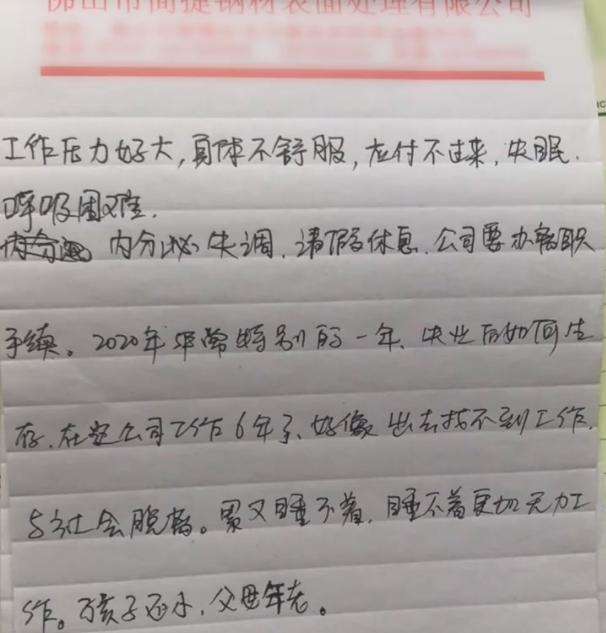 佛山市简捷钢材表面处理有限公司
工作压力好大，身体不舒服，应付不过来，失眠.
呼吸困难.
内分泌失调，请假休息，公司要办辞职
手续。2020年非常特别的一年、失业后如何生
存.在空公司工作6年了、好像出去找不到工作.
与社会脱替。累又睡不着，睡不着更加无力工
作。孩子还小，父母年老。